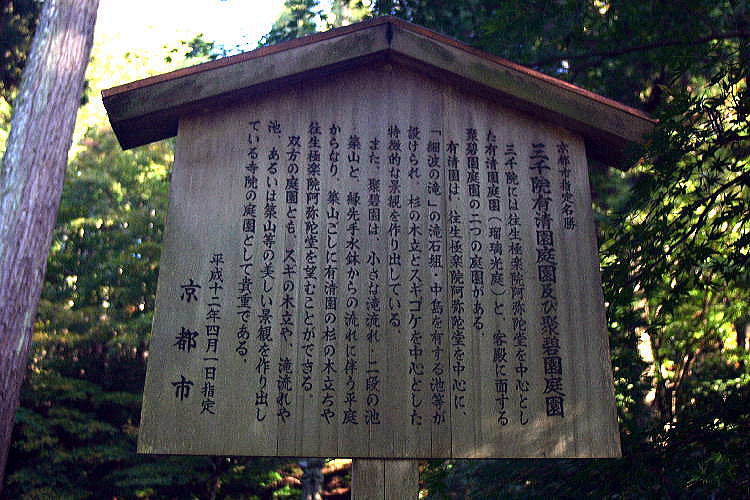 京都市指定名勝
三千院有清園庭園及び聚碧園庭園
三千院には往生極楽院阿弥陀堂を中心とし
た有清園庭園(瑠璃光庭)と、客殿に面する
聚碧園庭園の二つの庭園がある。
有清園は、往生極楽院阿弥陀堂を中心に、
「細波の滝」の滝石組・中島を有する池等が
設けられ、杉の木立とスギゴケを中心とした
特徴的な景観を作り出している。
また、聚碧園は、小さな滝流れ、二段の池
、築山と、縁先手水鉢からの流れに伴う平庭
からなり、築山ごしに有清園の杉の木立ちや
往生極楽院阿弥陀堂を望むことができる。
双方の庭園とも、スギの木立や、滝流れや
池、あるいは築山等の美しい景観を作り出し
ている寺院の庭園として貴重である。
平成十二年四月一日指定
京都市